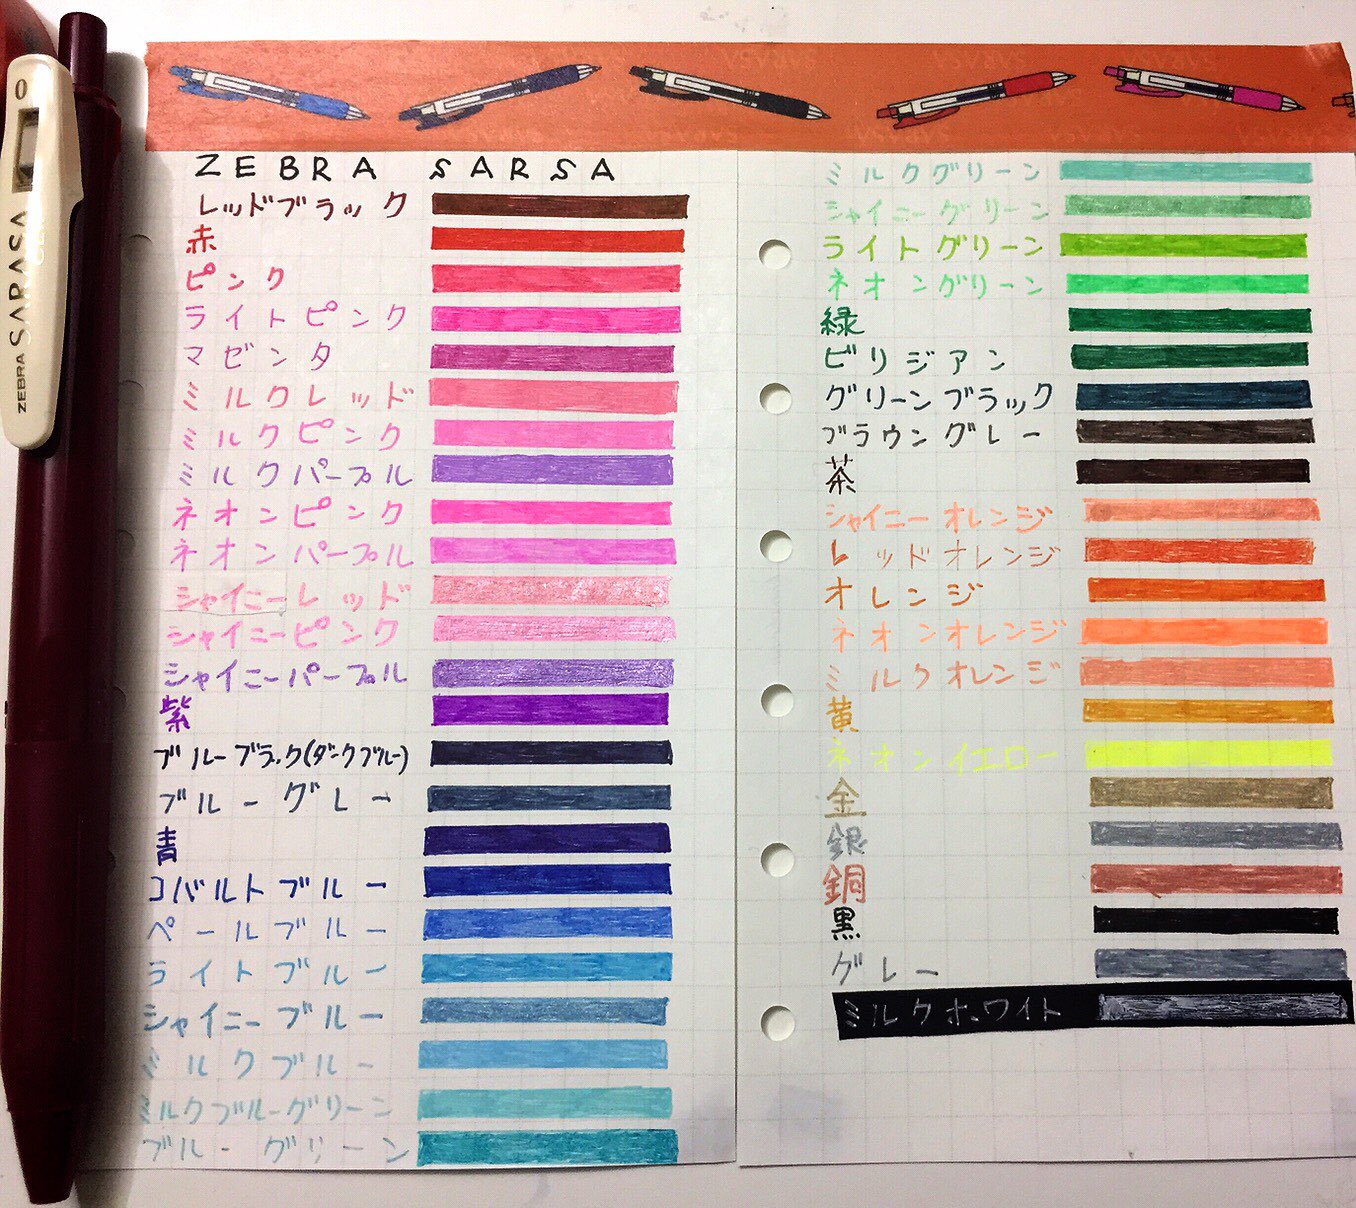 0
ZEBRA SARASA
ZEBRA SARSA
レッドブラック
赤
ピンク
ライトピンク
マゼンタ
ミルクレッド
ミルクピンク
ミルクパープル
ネオンピンク
ネオンパープル
シャイニーレッド
シャイニーピンク
シャイニーパープル
紫
ブルーブラック(ダークブルー)
ブルーグレー
青
コバルトブルー
ペールブルー
ライトブルー
シャイニーブルー
ミルクブルー
ミルクブルーグリーン
ブルーグリーン
ミルクグリーン
シャイニーグリーン
ライトグリーン
ネオングリーン
緑
ビリジアン
グリーンブラック
ブラウングレー
茶
シャイニーオレンジ
レッドオレンジ
オレンジ
ネオンオレンジ
ミルクオレンジ
黄
ネオンイエロー
金
銀
銅
黒
グレー
ミルクホワイト